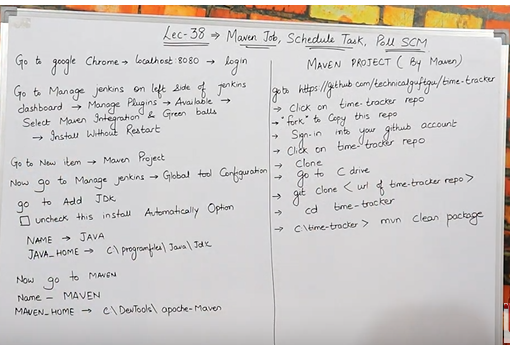 Lec-38 ⇒ Maven Job, Schedule Task, Poll SCM
Go to google Chrome → localhost 8080 → login
Go to Manage jenkins on left side of jenkins
dashboard → Manage Plugins → Available →
Select Maven Integration & Green balls
→ Install Without Restart
Go to New item → Maven Project
Now go to Manage jenkins → Global tool Configuration
go to Add JDK
uncheck this install Automatically Option
NAME → JAVA
JAVA_HOME → C\programfiles\Java\Jdk
Now go to MAVEN
Name - MAVEN
MAVEN_HOME → C\DevTools\apache-Maven
MAVEN PROJECT ( By Maven)
goto https://github.com/technicalguftgu/time-tracker
→ Click on time-tracker repo
→ "fork" to Copy this repo
→ Sign-in into your github account
→ Click on time-tracker repo
→ Clone
→ go to C drive
→ git clone < url of time-tracker repo >
→ cd time-tracker
→ C\time-tracker > mvn clean package